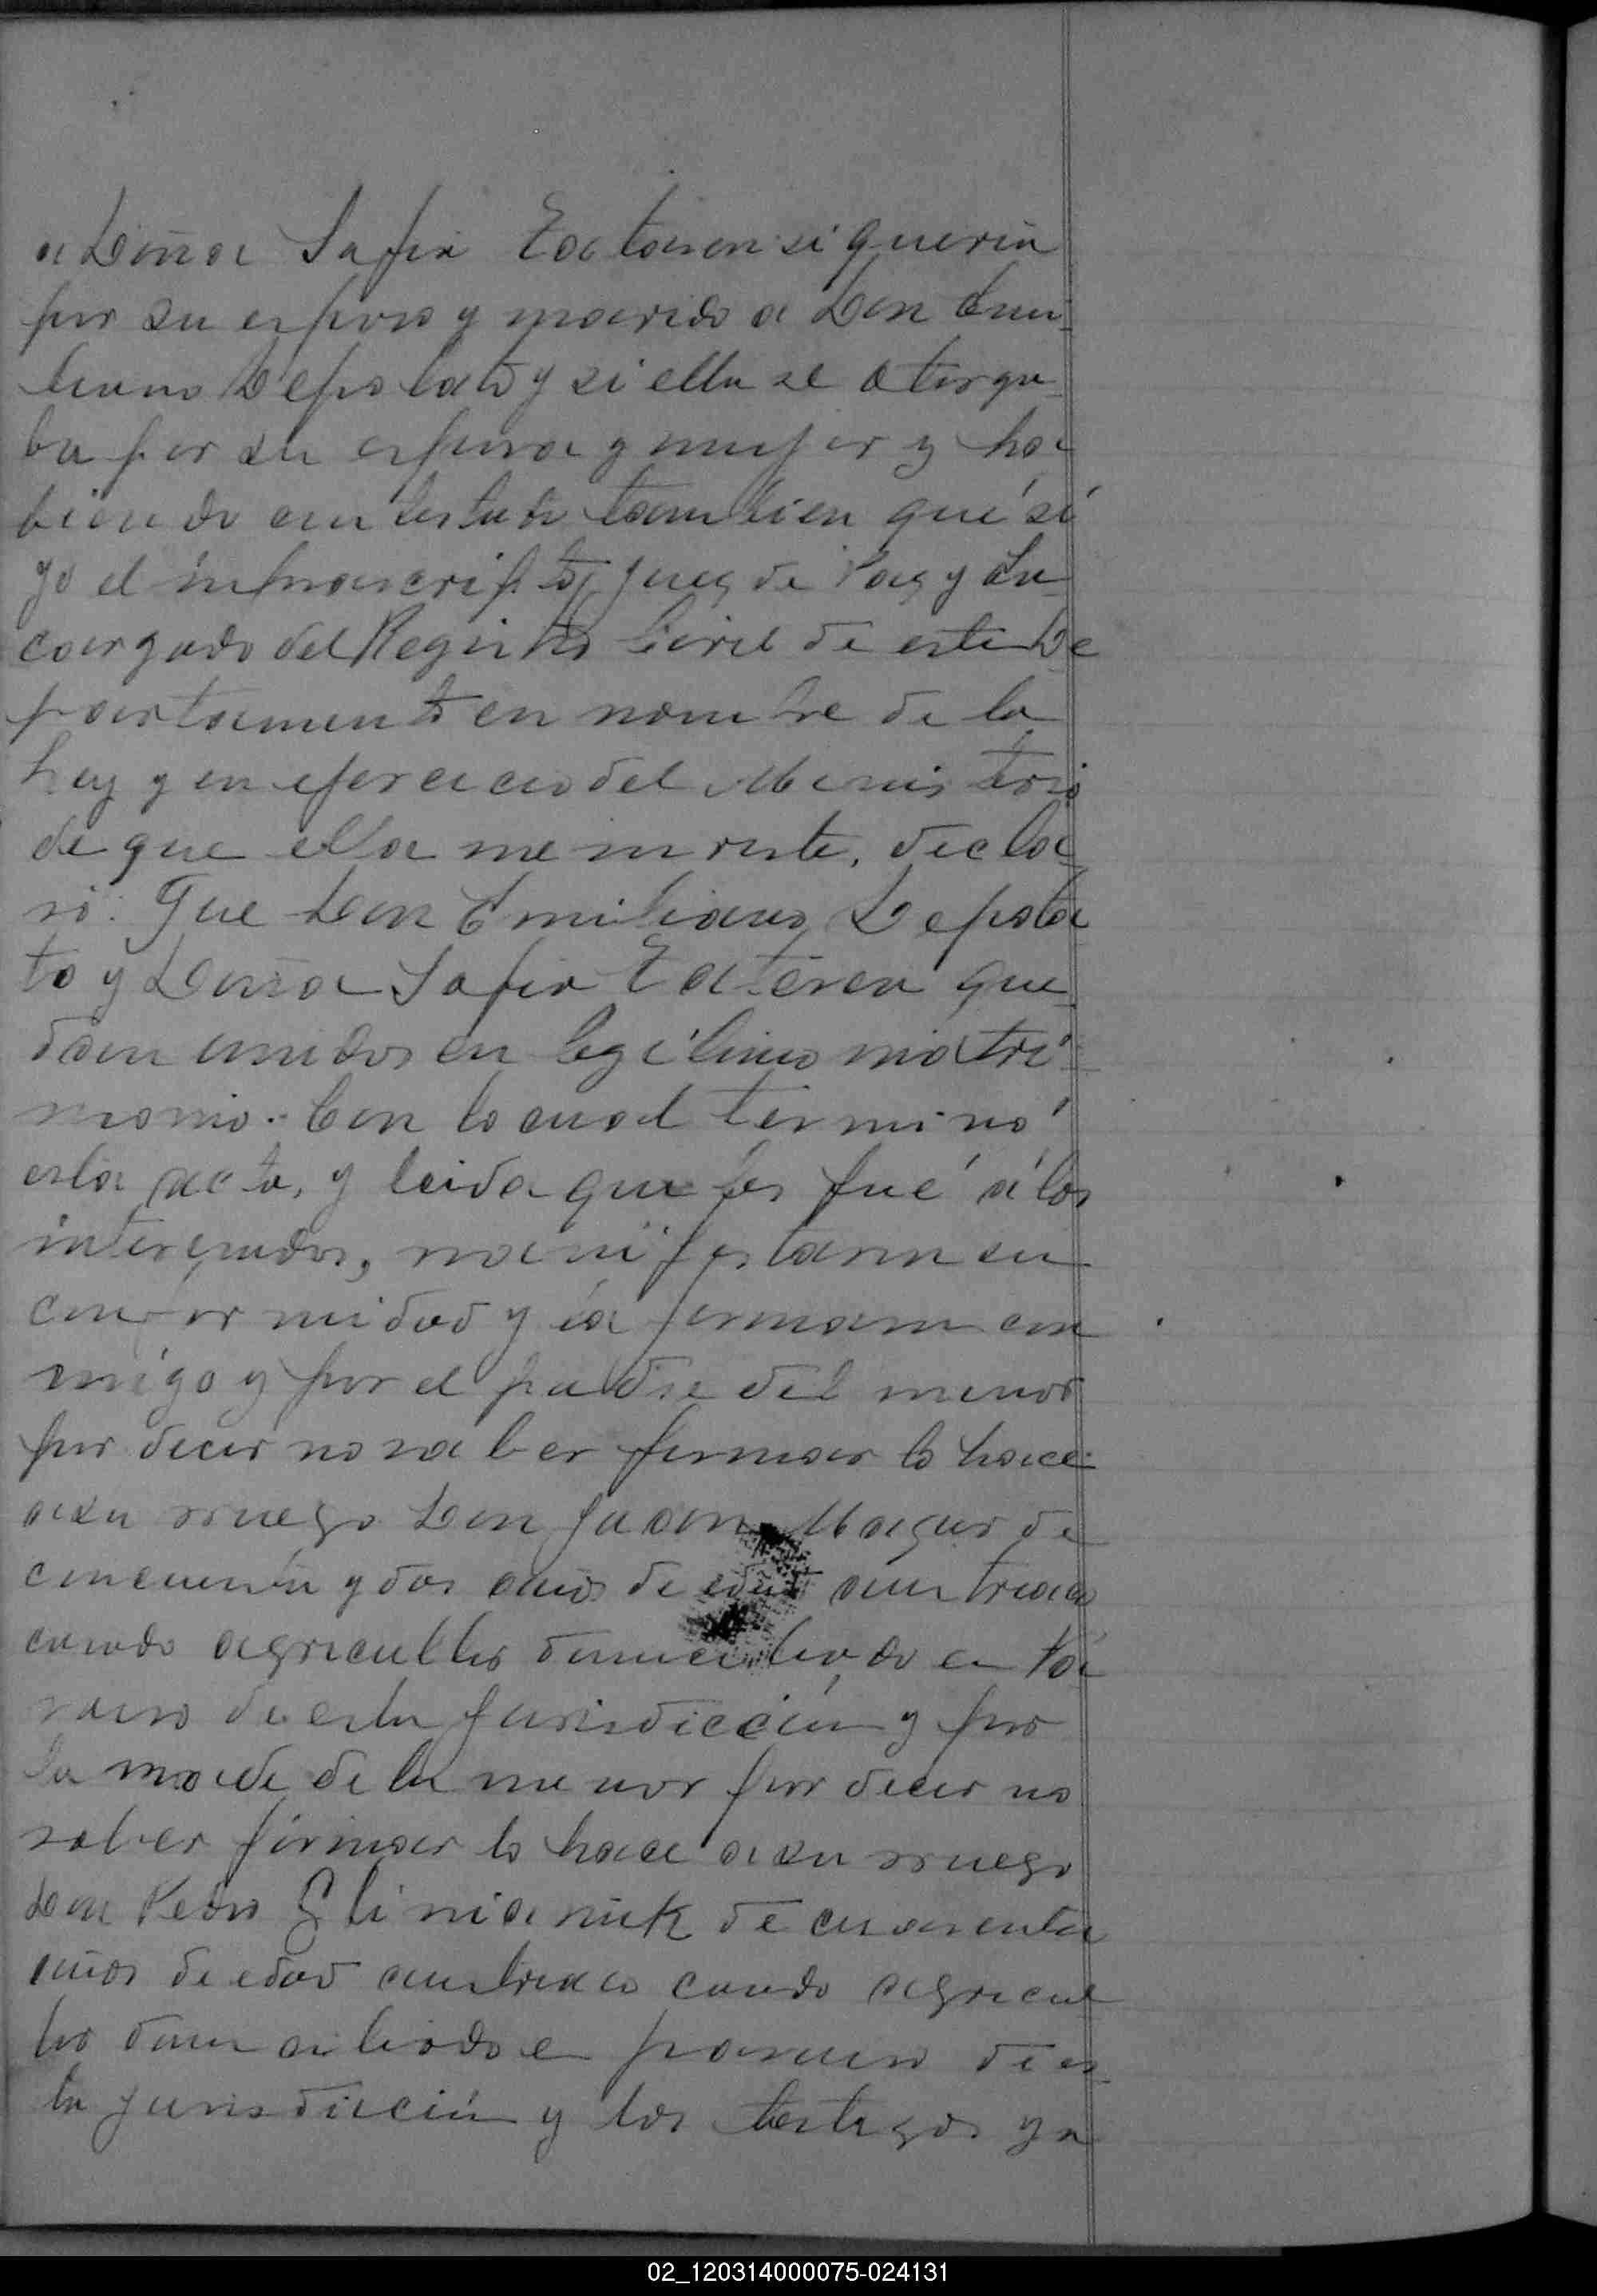 a Doña Sofia Tataren si queria
por su esposo y marido a Don Emi-
liano Depolato y si ella se otorga-
ba por su esposa y mujer y ha
biendo contestado tambien que sí
yo el infrascripto, Juez de Paz y En-
cargado del Registro Civil de este De
partamento en nombre de la
Ley y en ejercicio del Ministerio
de que ella me inviste, decla
ró: Que Don Emiliano Depola
to y Doña Sofia Tataren que
dan unidos en legitimo matri-
monio. Con lo cual terminó
esta acta, y leida que les fué á los
interesados, manifestaron su
conformidad y la firmaron con
migo y por el padre del menor
por decir no saber firmar lo hace
a su ruego Don Juan de
cincuenta y dos años de edad austriaco
casado agricultor domiciliado en Pá
ramo de esta jurisdicción y por
la made de la menor por decir no
saber firmar lo hace a su ruego
Don Pedro Glinianiuk de cuarenta
años de edad austriaco casado agricul
tor domiciliado en paramo de es
ta jurisdicción y los testigos ya